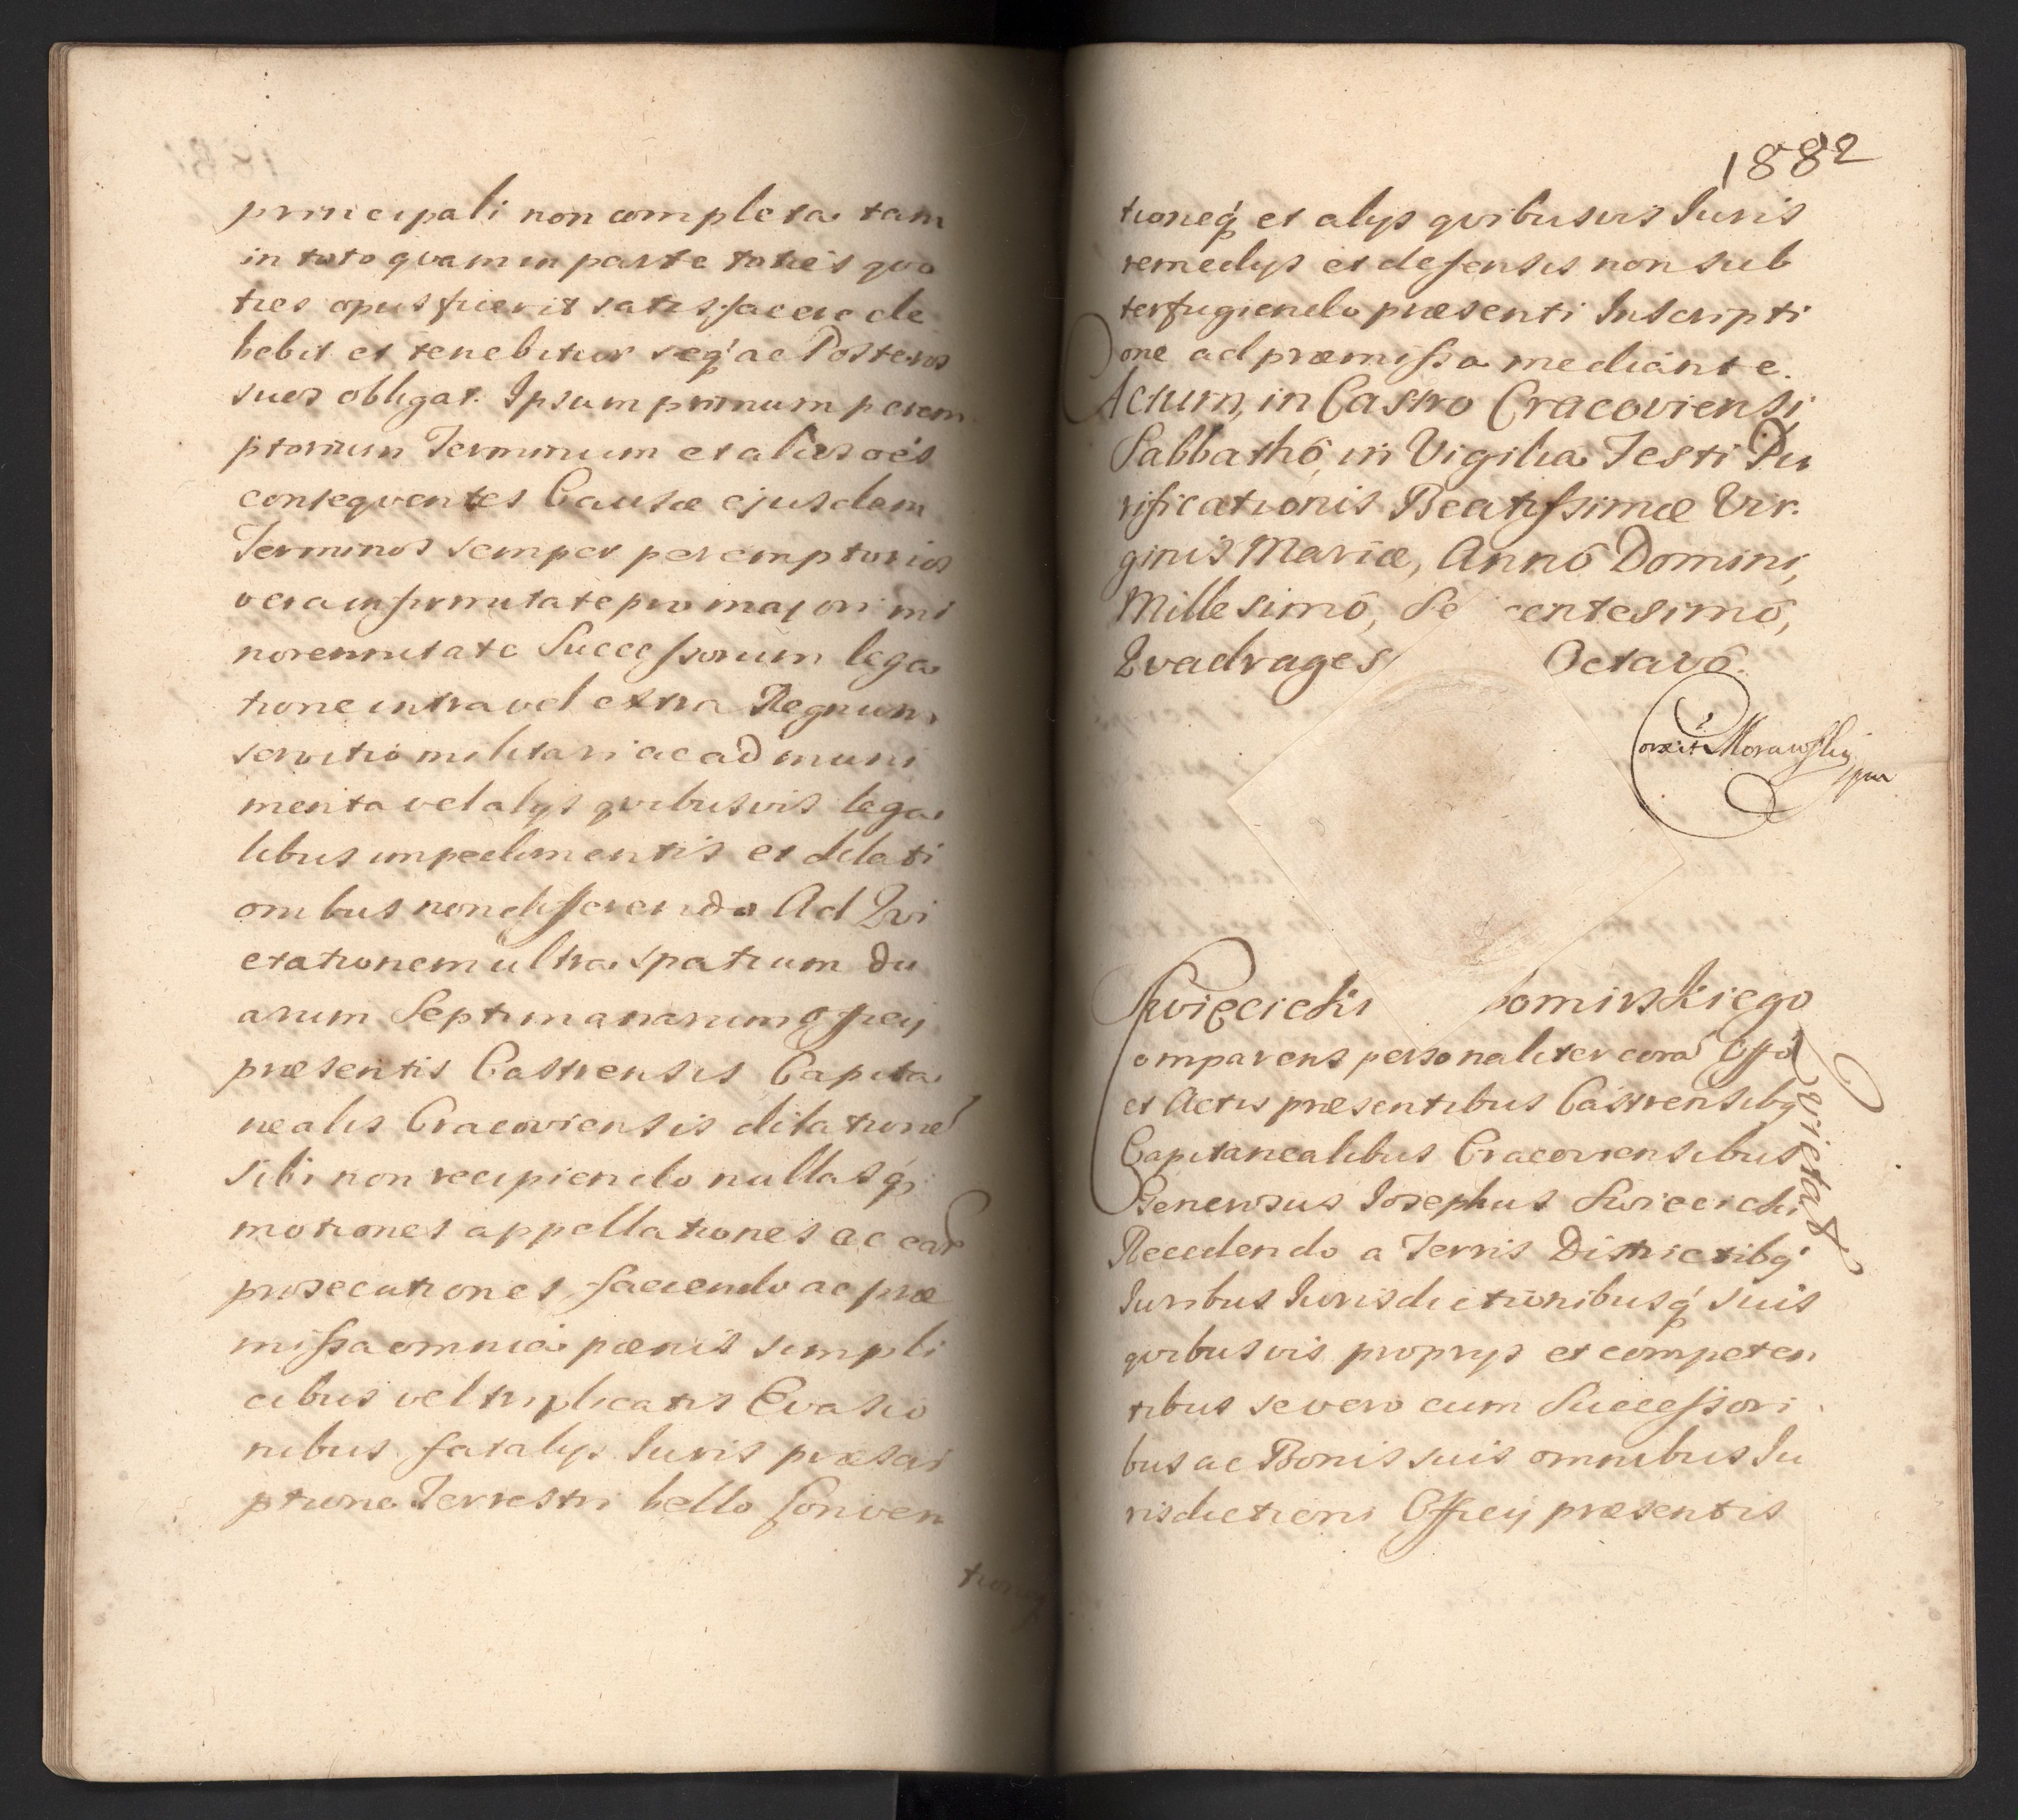 principali non completa tam
in toto quam in parte toties quo
ties opus fuerit satisfacere de
bebit et tenebitur seq́ ac Posteros
suos obligat. Ipsum primum perem
ptorium Terminum et alios oés
consequentes Causæ ejusdem
Terminos semper peremptorios
vera infirmitate pro majori mi
norennitate Successorum lega
tione intra vel extra Regnum
servitio militari ac ad muni
menta vel alys quibusvis lega
libus impedimentis et dilati
onibus non differendo Ad Qui
etationem ultra spatium du
arum Septimanarum Offcij
præsentis Castrensis Capita
nealis Cracoviensis dilationé
sibi non recipiendo nullasq́
motiones appellationes ac ear
prosecutiones faciendo ac præ
missa omnia pœnis simpli
cibus vel triplicatis Evasio
nibus fatalys Iuris præscri
ptione Terrestri bello Conven
tioneq́
1882
tioneq́ et alys quibusvis Iuris
remedys et defensis non sub
terfugiendo præsenti Inscripti
one ad præmissa mediante.
Actum, in Castro Cracoviensi,
Sabbathô, in Vigilia Festi Pu
rificationis Beatissimæ Vir.
ginis Mariæ, Annô Domini,
Millesimô, Se centesimô,
Quadrages Octavô.
Corexit Morawskij
mpa
Swięcicki bomirskiego
Comparens personaliter corá Offó
et Actis præsentibus Castrensibq
Capitanealibus Cracoviensibus
Generosus Iosephus Swiecicki
Recedendo a Terris Districtibq́
Iuribus Iurisdictionibusq́ suis
quibusvis proprys et competen
tibus se vero cum Successori
bus ac Bonis suis omnibus Iu
risdictioni Offcij præsentis
Quietat